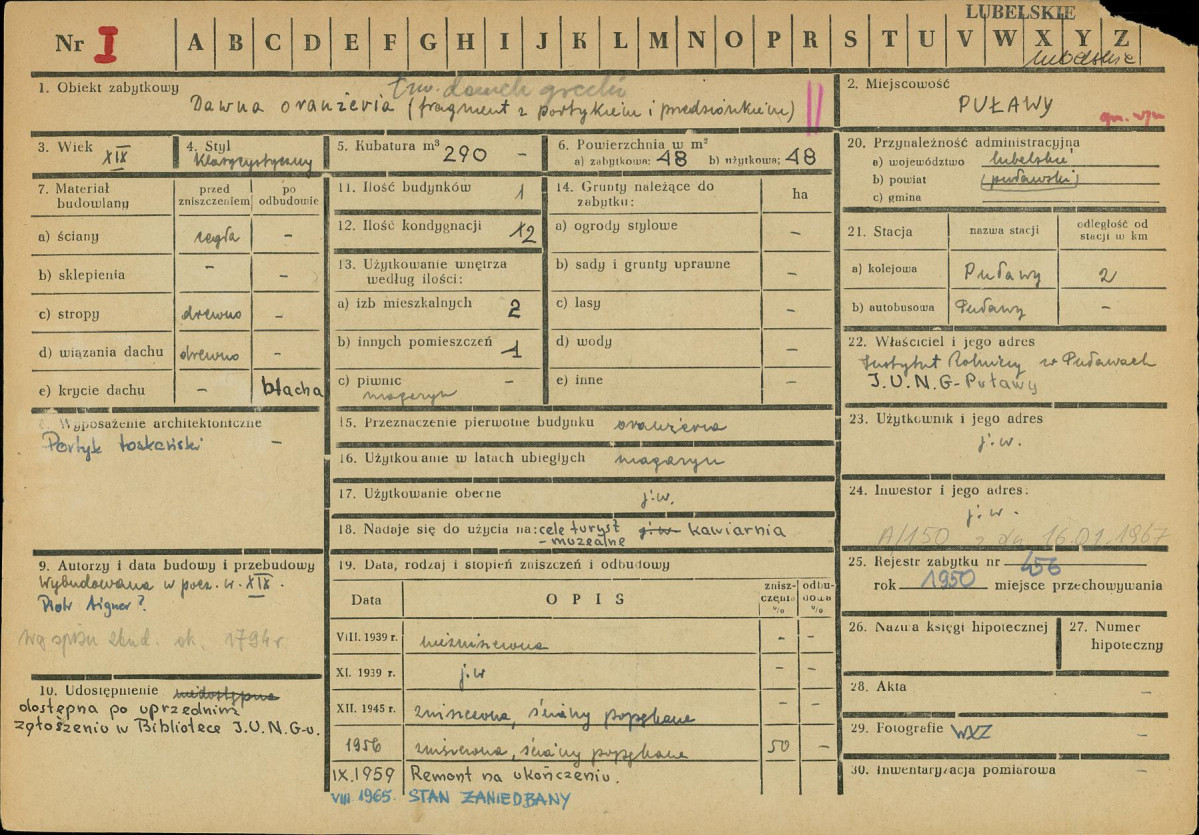 LUBELSKIE
Nr I A B C D E F G H I J K L M N O P R S T U V W X Y Z
lubelskie
1. Obiekt zabytkowy
tzw. domek grecki
Dawna oranżeria (fragment z portykiem i przedsionkiem)
2. Miejscowość
PUŁAWY
3. Wiek
XIX
4. Styl
klasycystyczny
5. Kubatura m³ 290 -
6. Powierzchnia w m²
a) zabytkowa: 48 b) użytkowa: 48
20. Przynależność administracyjna
a) województwo lubelskie
b) powiat (puławski)
c) gmina
7. Materiał budowlany
przed zniszczeniem
po odbudowie
a) ściany cegła -
b) sklepienia - -
c) stropy drewno -
d) wiązania dachu drewno -
e) krycie dachu - blacha
8. Wyposażenie architektoniczne
Portyk toskański -
9. Autorzy i data budowy i przebudowy
Wybudowana w pocz. w. XIX.
Piotr Aigner?
wg spisu zbud. ok. 1794 r
10. Udostępnienie niedostępna
dostępna po uprzednim
zgłoszeniu w Bibliotece J.U.N.G-u.
11. Ilość budynków 1
12. Ilość kondygnacji 12
13. Użytkowanie wnętrza
według ilości:
a) izb mieszkalnych 2
b) innych pomieszczeń 1
c) piwnic -
magazyn
14. Grunty należące do
zabytku: ha
a) ogrody stylowe -
b) sady i grunty uprawne -
c) lasy -
d) wody -
e) inne -
15. Przeznaczenie pierwotne budynku oranżeria
16. Użytkowanie w latach ubiegłych magazyn
17. Użytkowanie obecne j.w.
18. Nadaje się do użycia na: cele turyst j.w. kawiarnia
- muzealne
19. Data, rodzaj i stopień zniszczeń i odbudowy
Data OPIS zniszczenia % odbudowa %
VIII. 1939 r. niezniszczona - -
XI. 1939 r. j.w - -
XII. 1945 r. zniszczona, ściany popękane - -
1956 zniszczona, ściany popękane 50 -
IX.1959 Remont na ukończeniu.
VIII 1965. STAN ZANIEDBANY
21. Stacja
nazwa stacji
odległość od
stacji w km
a) kolejowa Puławy 2
b) autobusowa Puławy -
22. Właściciel i jego adres
Instytut Rolniczy w Puławach
J.U.N.G-Puławy
23. Użytkownik i jego adres
j.w.
24. Inwestor i jego adres:
j.w.
A/150 z dn 16.01.1967
25. Rejestr zabytku nr 456
rok 1950 miejsce przechowywania
26. Nazwa księgi hipotecznej
27. Numer
hipoteczny
28. Akta -
29. Fotografie WKZ -
30. Inwentaryzacja pomiarowa -